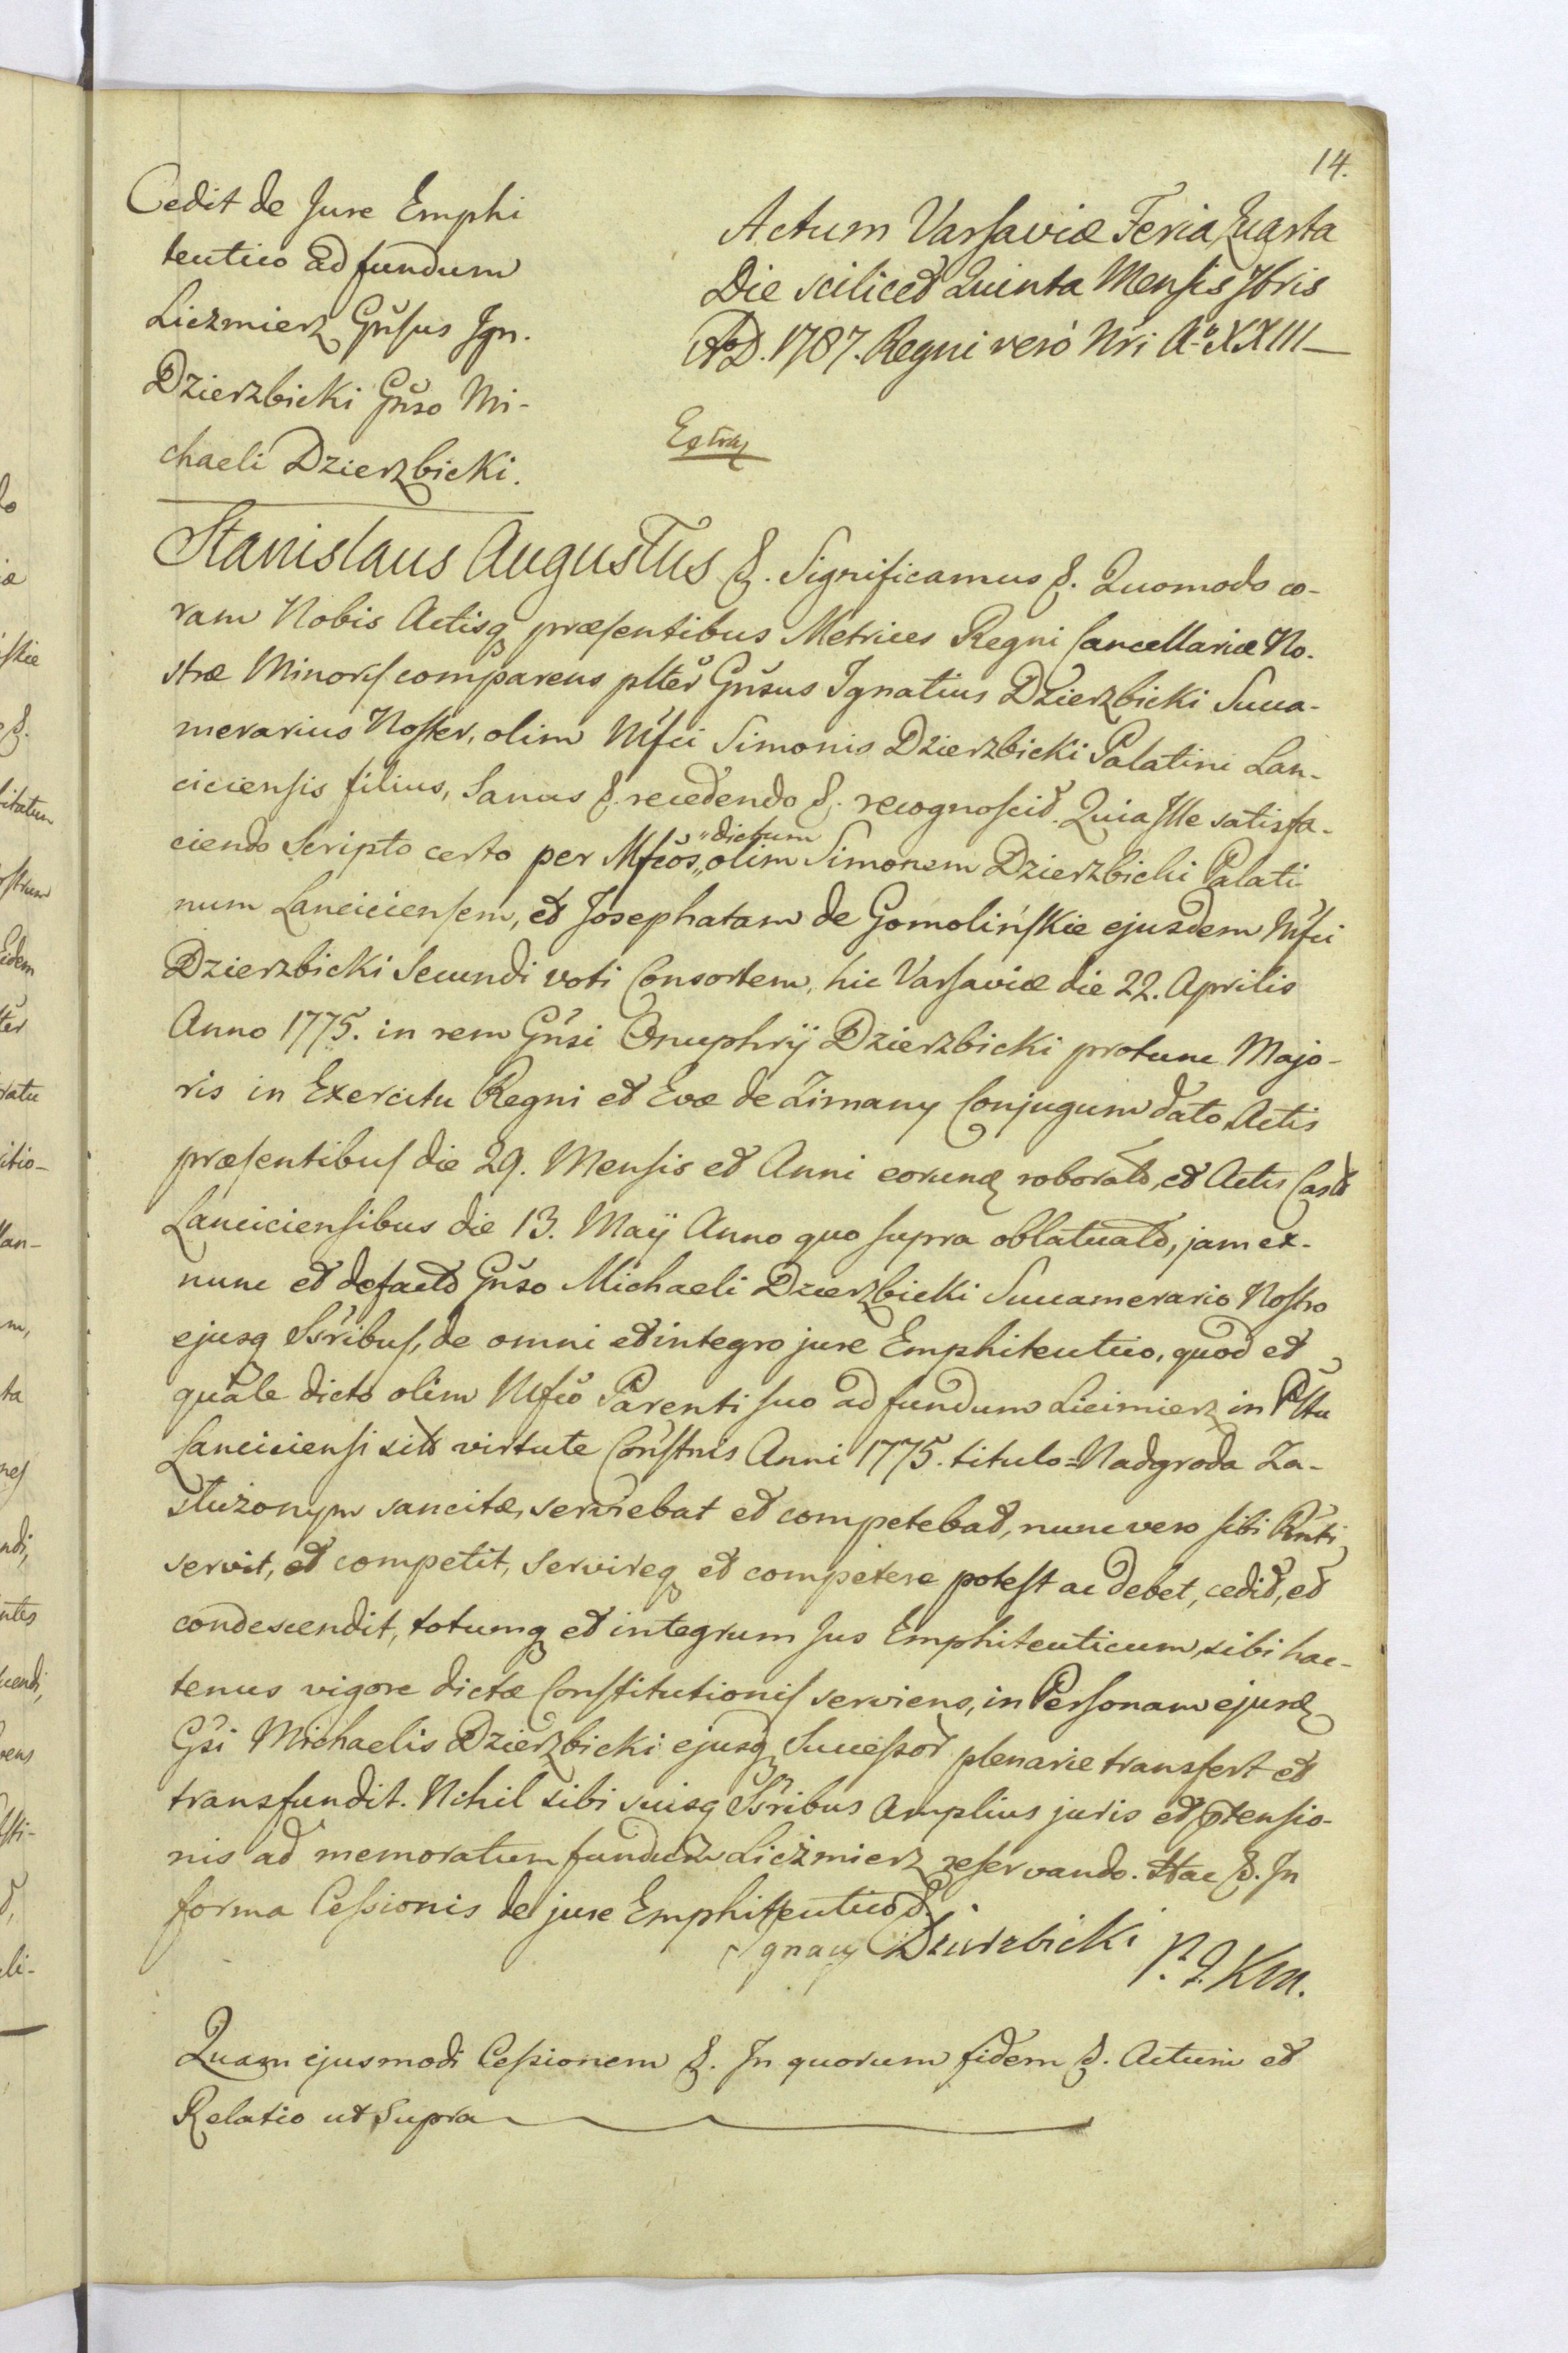 14.
Cedit de Jure Emphi
teutico ad fundum
Liczmierz Gnsus Ign.
Dzierzbicki Gnso Mi-
chaeli Dzierzbicki.
Actum Varsaviæ Feria Quarta
Die scilicet Quinta Mensis 7bris
AD. 1787. Regni vero Nri Aō XXIII
Stanislaus Augustus &. Significamus &. Quomodo co-
ram Nobis Actisq præsentibus Metrices Regni Cancellariæ No-
stræ Minoris comparens plter Gnsus Ignatius Dzierzbicki Succa-
merarius Noster, olim Mfci Simonis Dzierzbicki Palatini Lan-
ciciensis filius, Sanus &. recedendo &. recognoscit. Quia Ille satisfa-
ciendo Scripto certo per Mfcos „dictum olim Simonem Dzierzbicki Palati-
num Lanciciensem, et Josephatam de Gomolińskie ejusdem Mfci
Dzierzbicki Secundi voti Consortem, hic Varsaviæ die 22. Aprilis
Anno 1775. in rem Gnsi Onuphrÿ Dzierzbicki protunc Majo-
ris in Exercitu Regni et Evæ de Zimany Conjugum dato, Actis
præsentibus die 29. Mensis et Anni eorund roborato, et Actis Castr
Lanciciensibus die 13. Maÿ Anno quo supra oblatuato, jam ex-
nunc et defacto Gnso Michaeli Dzierzbicki Succamerario Nostro
ejusq Ssribus, de omni et integro jure Emphiteutico, quod et
quale dicto olim Mfco Parenti suo ad fundum Licimierz in Pttu
Lanciciensi sito virtute Constnis Anni 1775. titulo=Nadgroda Za-
służonym sancitæ, serviebat et competebat, nunc vero sibi Rnti
servit, et competit, servireq et competere potest ac debet, cedit, et
condescendit, totumq et integrum Jus Emphiteuticum, sibi hac-
tenus vigore dictæ Constitutionis serviens, in Personam ejusd
Gsi Michaelis Dzierzbicki ejusq Successor plenarie transfert et
transfundit. Nihil sibi suisq Ssribus amplius juris et ptensio-
nis ad memoratum fundum Liczmierz reservando. Hac &. In
forma Cessionis de jure Emphiteutico &.
Ignacy Dzierzbicki
Quam ejusmodi Cessionem &. In quorum fidem &. Actum et
Relatio ut Supra